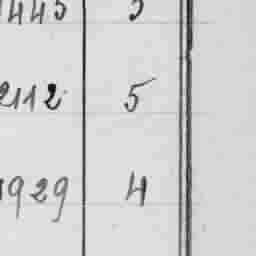 1445 5
2112 5
1929 4